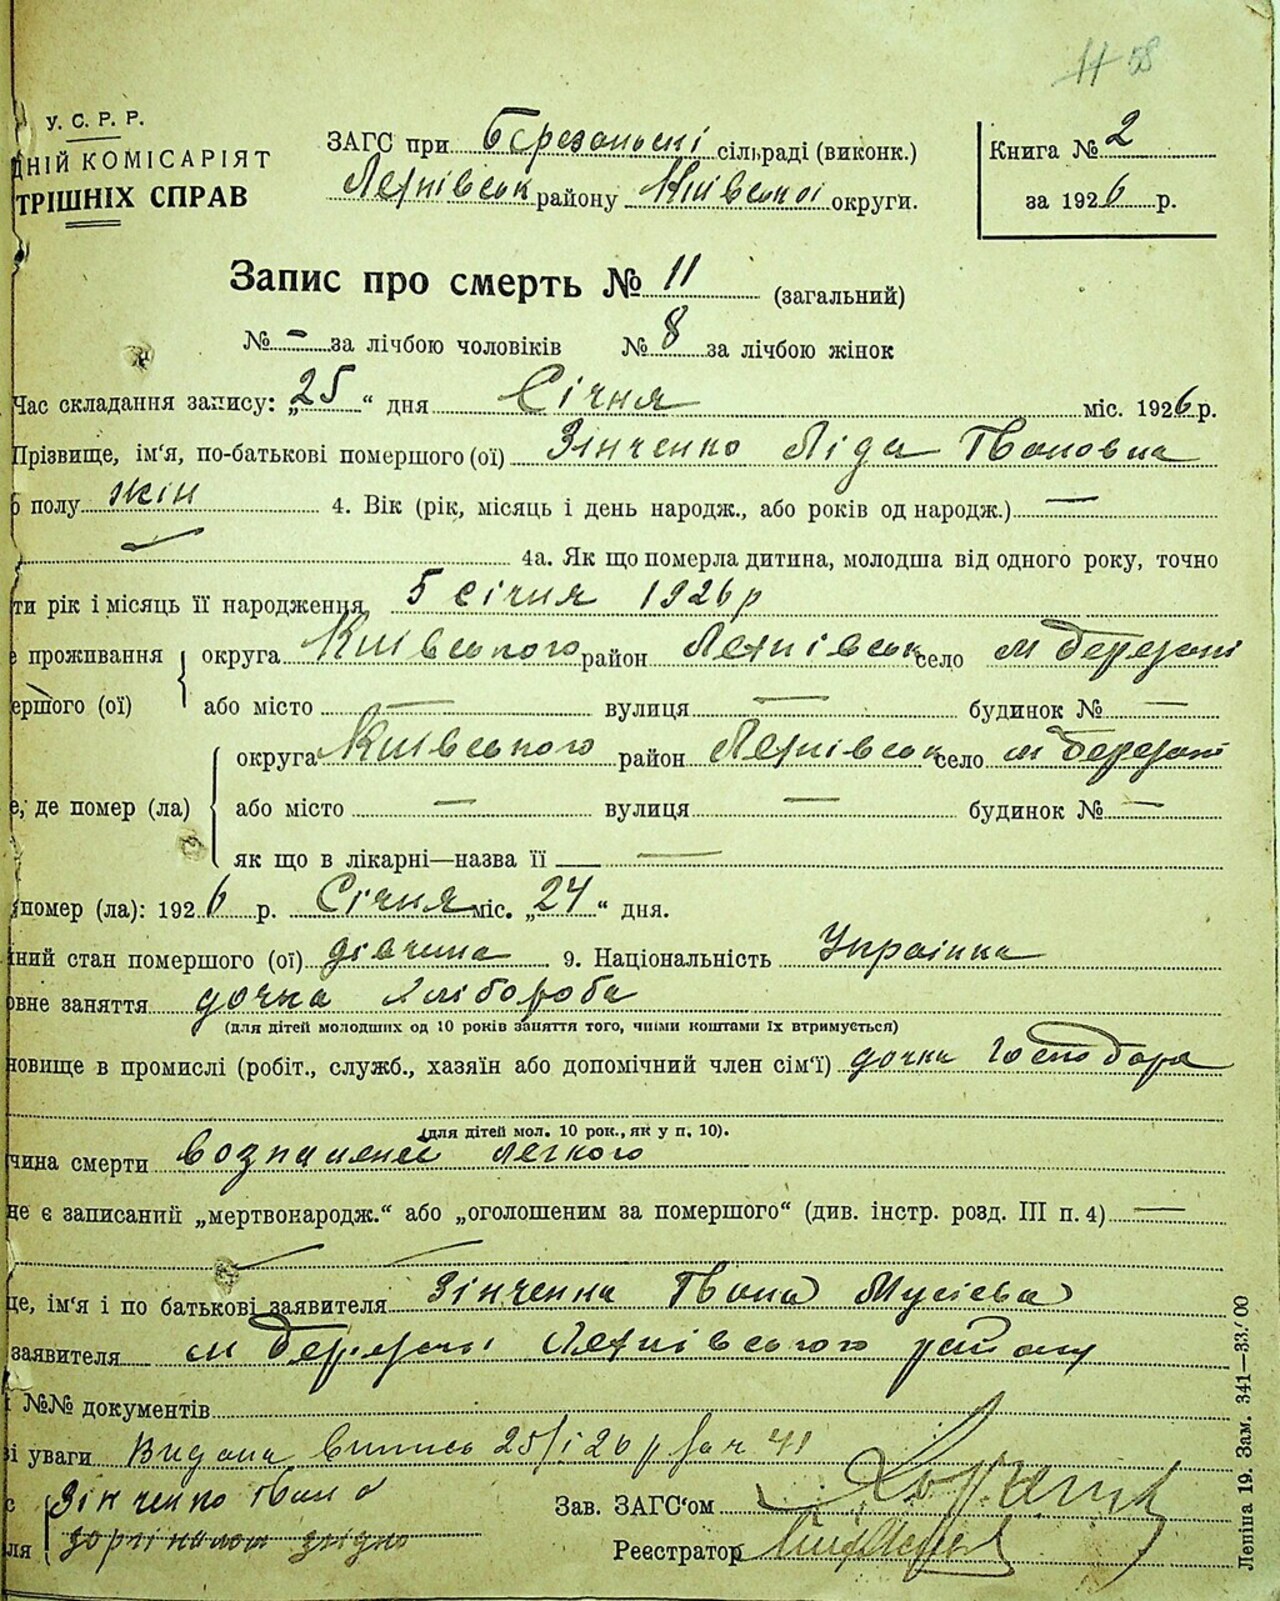 11 58
У. С. Р. Р.
ДНІЙ КОМІСАРІЯТ
ТРІШНІХ СПРАВ
ЗАГС при Березанські сільраді (виконк.)
району Київської округи.
Книга № 2
за 1926 р.
Запис про смерть № 11 (загальний)
№ - за лічбою чоловіків № 8 за лічбою жінок
Час складання запису: „25“ дня Січня міс. 1926 р.
Прізвище, ім'я, по-батькові помершого (ої) Зінченко Ліда Івановна
полу жін 4. Вік (рік, місяць і день народж., або років од народж.) —
4а. Як що померла дитина, молодша від одного року, точно
ти рік і місяць її народження 5 січня 1926 р
проживання округа Київського район село м Березані
ершого (ої) або місто — вулиця — будинок № —
округа Київського район село м Березані
е, де помер (ла) або місто — вулиця — будинок № —
як що в лікарні—назва її —
помер (ла): 1926 р. Січня міс. „24“ дня.
ний стан помершого (ої) дівчина 9. Національність Украінка
овне заняття дочка хлібороба
(для дітей молодших од 10 років заняття того, чиїми коштами їх втримується)
новище в промислі (робіт., служб., хазяїн або допомічний член сім'ї) дочка Господаря
(для дітей мол. 10 рок., як у п. 10).
чина смерти легкого
це є записаний „мертвонародж.“ або „оголошеним за помершого“ (див. інстр. розд. III п. 4) —
це, ім'я і по батькові заявителя Зінченка Івана Мусієва
заявителя м Березані району
і №№ документів
ві уваги Видана випись 25/I 26 р за ч 41
с Зінченко Іван
ля з орігіналом згідно
Зав. ЗАГС'ом
Реестратор
Лепіна 19. Зам. 341—33.000